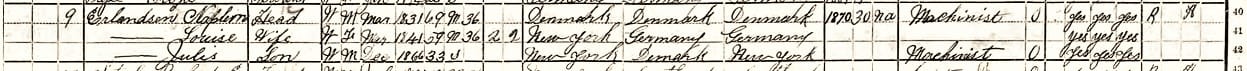 9 Erlandson Napleon Head W M Mar 1831 69 M 36 Denmark Denmark Denmark 1870 30 na Machinist 0 yes yes yes R H 40
Louise Wife W F Mar 1841 59 M 36 2 2 New York Germany Germany yes yes yes 41
Julis Son W M Dec 1866 33 S New York Demark New York Machinist 0 yes yes yes 42
43